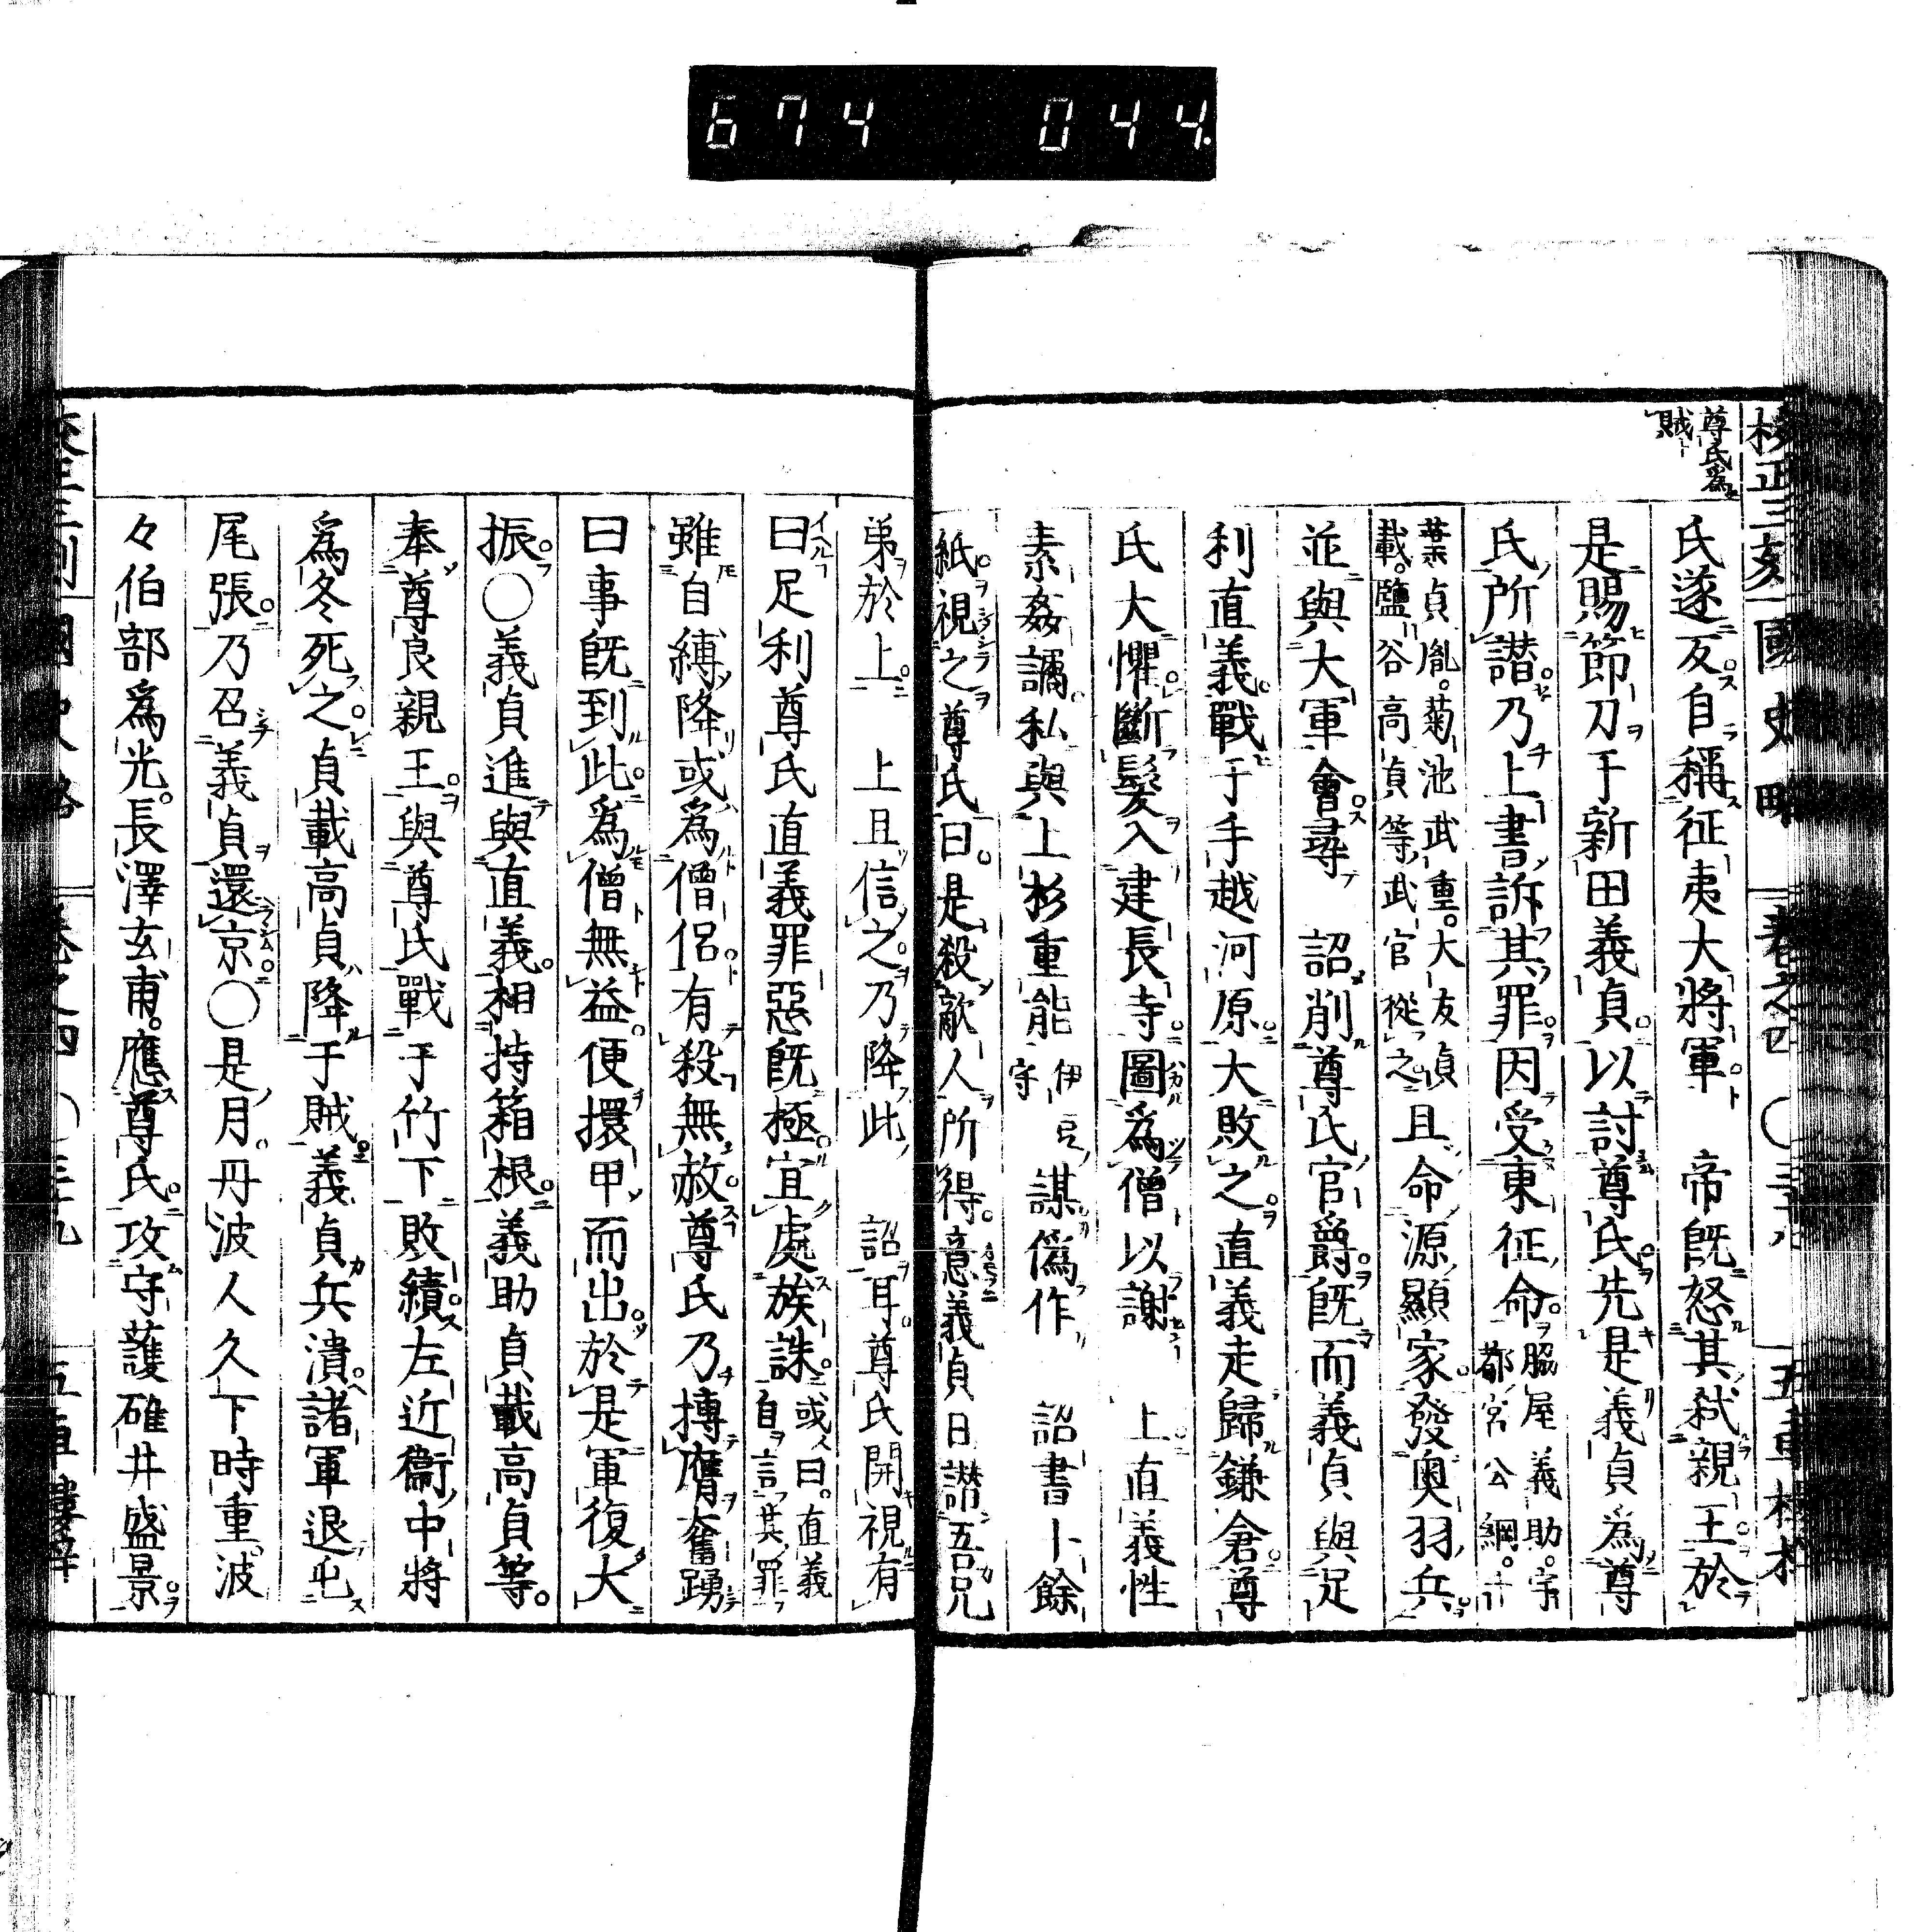 674 044
尊氏為
賊
校正三刻國史略 卷之四 ○三十八 五車樓梓
氏遂反自稱征夷大將軍 帝既怒其弑親王於
是賜節刀于新田義貞以討尊氏先是義貞為尊
氏所譖乃上書訴其罪因受東征命脇屋義助宇
都宮公綱千
葉貞胤菊池武重大友貞
載鹽谷高貞等武官從之且命源顯家發奧羽兵
並與大軍會尋 詔削尊氏官爵既而義貞與足
利直義戰于手越河原大敗之直義走歸鎌倉尊
氏大懼斷髮入建長寺圖為僧以謝 上直義性
素姦譎私與上杉重能伊豆
守謀偽作 詔書十餘
紙視之尊氏曰是殺敵人所得意義貞日譖吾兄
弟於上 上且信之乃降此 詔耳尊氏開視有
曰足利尊氏直義罪惡既極宜處族誅或曰直義
自言其罪
雖自縛降或為僧侶有殺無赦尊氏乃摶膺奮踴
曰事既到此為僧無益便擐甲而出於是軍復大
振○義貞進與直義相持箱根義助貞載高貞等
奉尊良親王與尊氏戰于竹下敗績左近衞中將
為冬死之貞載高貞降于賊義貞兵潰諸軍退屯
尾張乃召義貞還京○是月丹波人久下時重波
々伯部為光長澤玄甫應尊氏攻守護碓井盛景